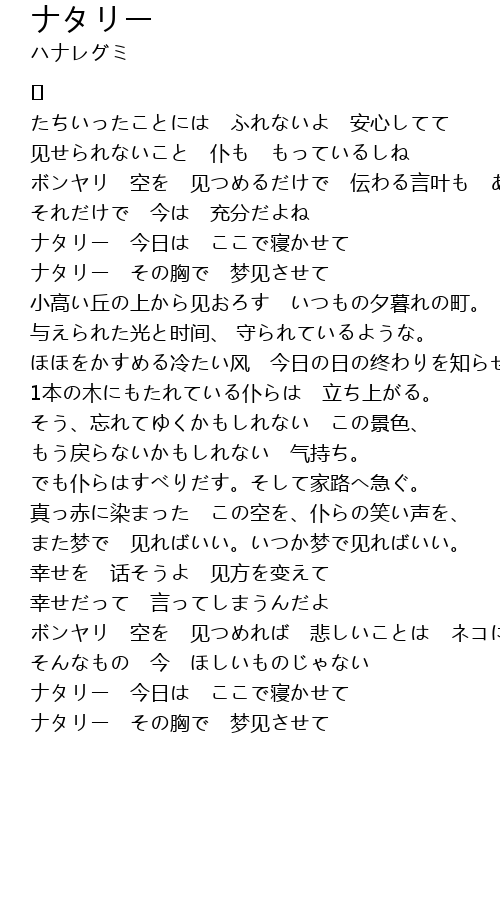 ナタリー
ハナレグミ
たちいったことには　ふれないよ　安心してて
见せられないこと　仆も　もっているしね
ボンヤリ　空を　见つめるだけで　伝わる言叶も　あ
それだけで　今は　充分だよね
ナタリー　今日は　ここで寝かせて
ナタリー　その胸で　梦见させて
小高い丘の上から见おろす　いつもの夕暮れの町。
与えられた光と时间、 守られているような。
ほほをかすめる冷たい风　今日の日の终わりを知らせ
1本の木にもたれている仆らは　立ち上がる。
そう、忘れてゆくかもしれない　この景色、
もう戻らないかもしれない　気持ち。
でも仆らはすべりだす。そして家路へ急ぐ。
真っ赤に染まった　この空を、仆らの笑い声を、
また梦で　见ればいい。いつか梦で见ればいい。
幸せを　话そうよ　见方を变えて
幸せだって　言ってしまうんだよ
ボンヤリ　空を　见つめれば　悲しいことは　ネコに
そんなもの　今　ほしいものじゃない
ナタリー　今日は　ここで寝かせて
ナタリー　その胸で　梦见させて